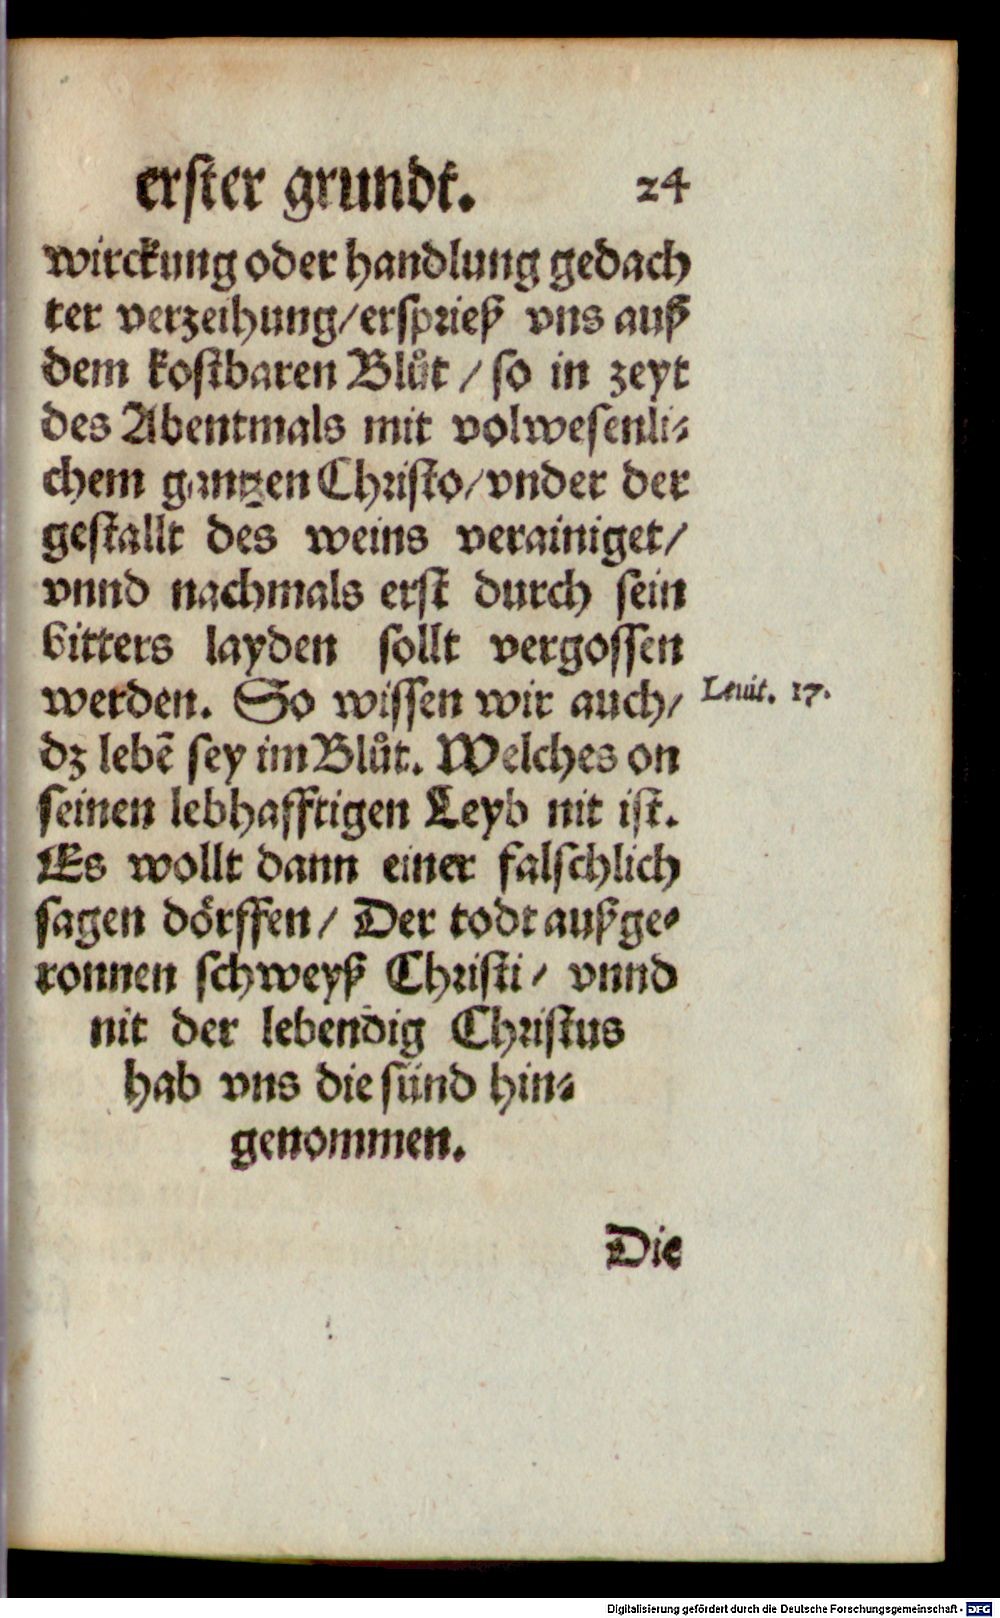 erster grundt. 24
wirckung oder handlung gedach
ter verzeihung/ersprieß vns auß
dem kostbaren Blůt / so in zeyt
des Abentmals mit volwesenli⸗
chem gantzen Christo/vnder der
gestallt des weins verainiget/
vnnd nachmals erst durch sein
bitters layden sollt vergossen
werden. So wissen wir auch/ Leuit. 17.
dz lebē sey im Blůt. Welches on
seinen lebhafftigen Leyb nit ist.
Es wollt dann einer falschlich
sagen dörffen/ Der todt außge⸗
ronnen schweyß Christi/ vnnd
nit der lebendig Christus
hab vns die sünd hin⸗
genommen.
Die
Digitalisierung gefördert durch die Deutsche Forschungsgemeinschaft - DFG